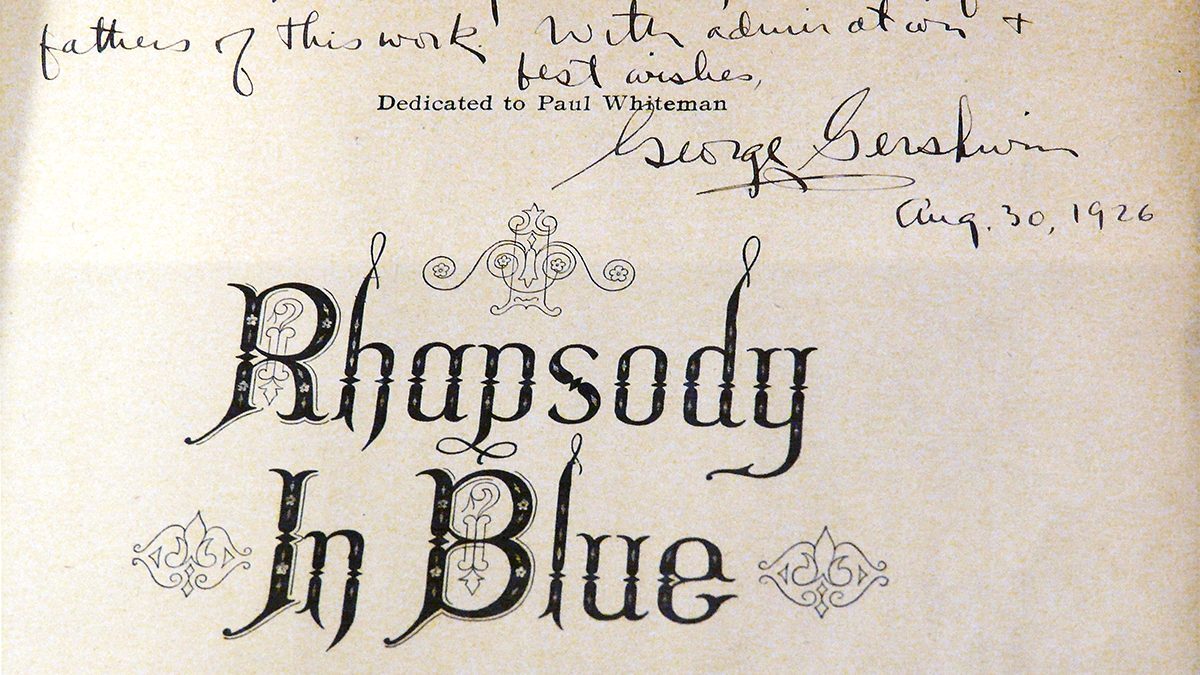 fathers of this work. With admiration +
best wishes,
Dedicated to Paul Whiteman
George Gershwin
Aug. 30, 1926
Rhapsody
In Blue